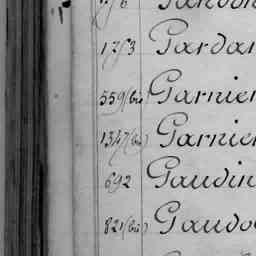 1753 Gardan
559(bis) Garnier
1347(bis) Garnier
692 Gaudin
821(bis) Gaudo